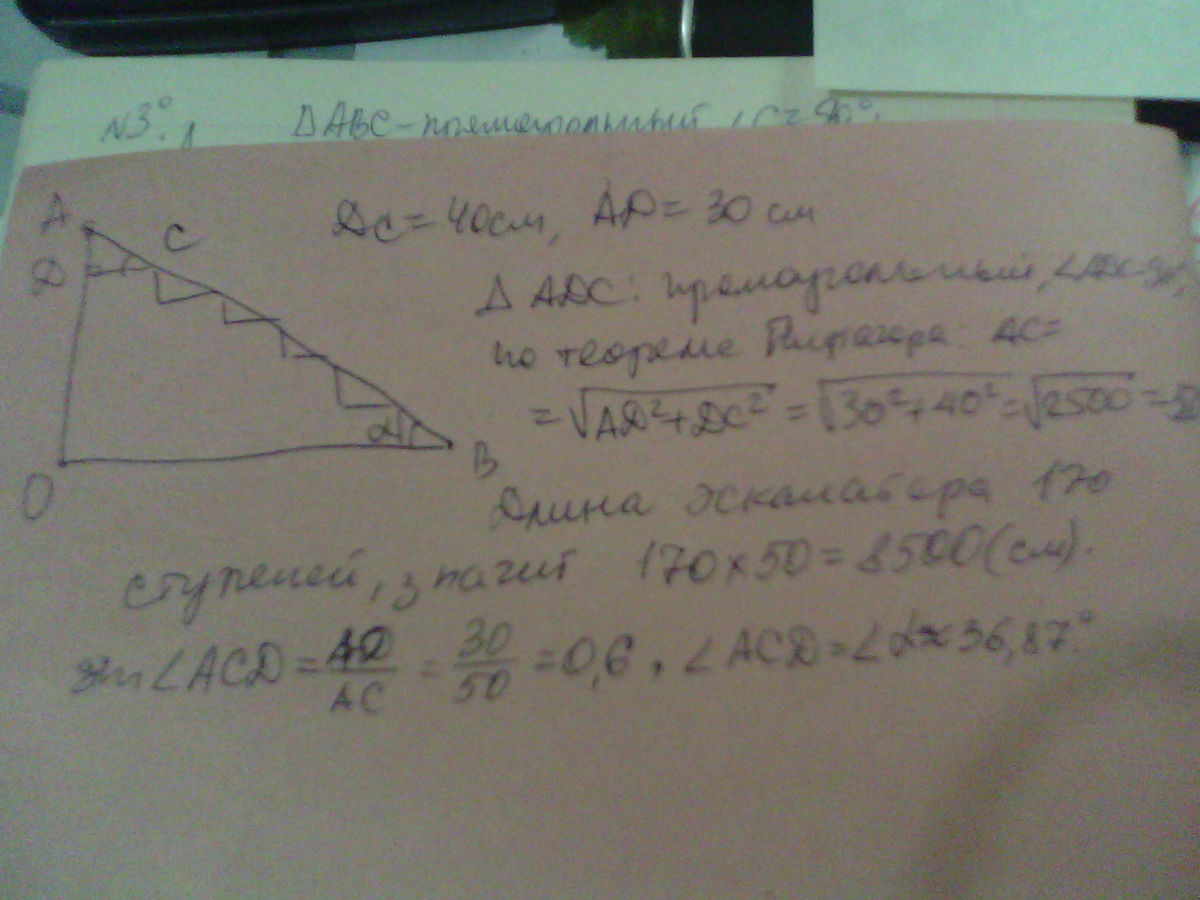 N3°.1 ΔABC - прямоугольный, ∠C = 90°.
A
C
D
α
O
B
DC = 40 см, AD = 30 см
Δ ADC: прямоугольный, ∠ADC = 90°,
по теореме Пифагора AC =
= √AD² + DC² = √30² + 40² = √2500 = 50
Длина эскалатора 170
ступеней, значит 170 × 50 = 8500 (см).
sin ∠ACD = AD/AC = 30/50 = 0,6, ∠ACD = ∠α ≈ 36,87°.